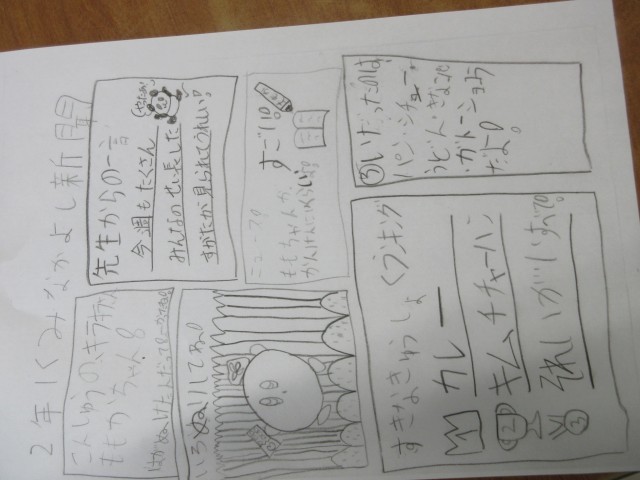 2年1くみなかよし新聞
こんしゅうのキラキラ
ももかちゃん
先生からの一言
今週もたくさん
みんなのせい長した
すがたが見られてうれしい。
いろぬりしてね。
ニュース
すごい。
ももちゃんが
すきなきゅうしょくランキング
カレー
2
キムチチャーハン
3
それいがいすべて。
③いがいだったのは、
パン・シチュー・
うどん・ぎょうざ
ガトーショコラ
だよ。